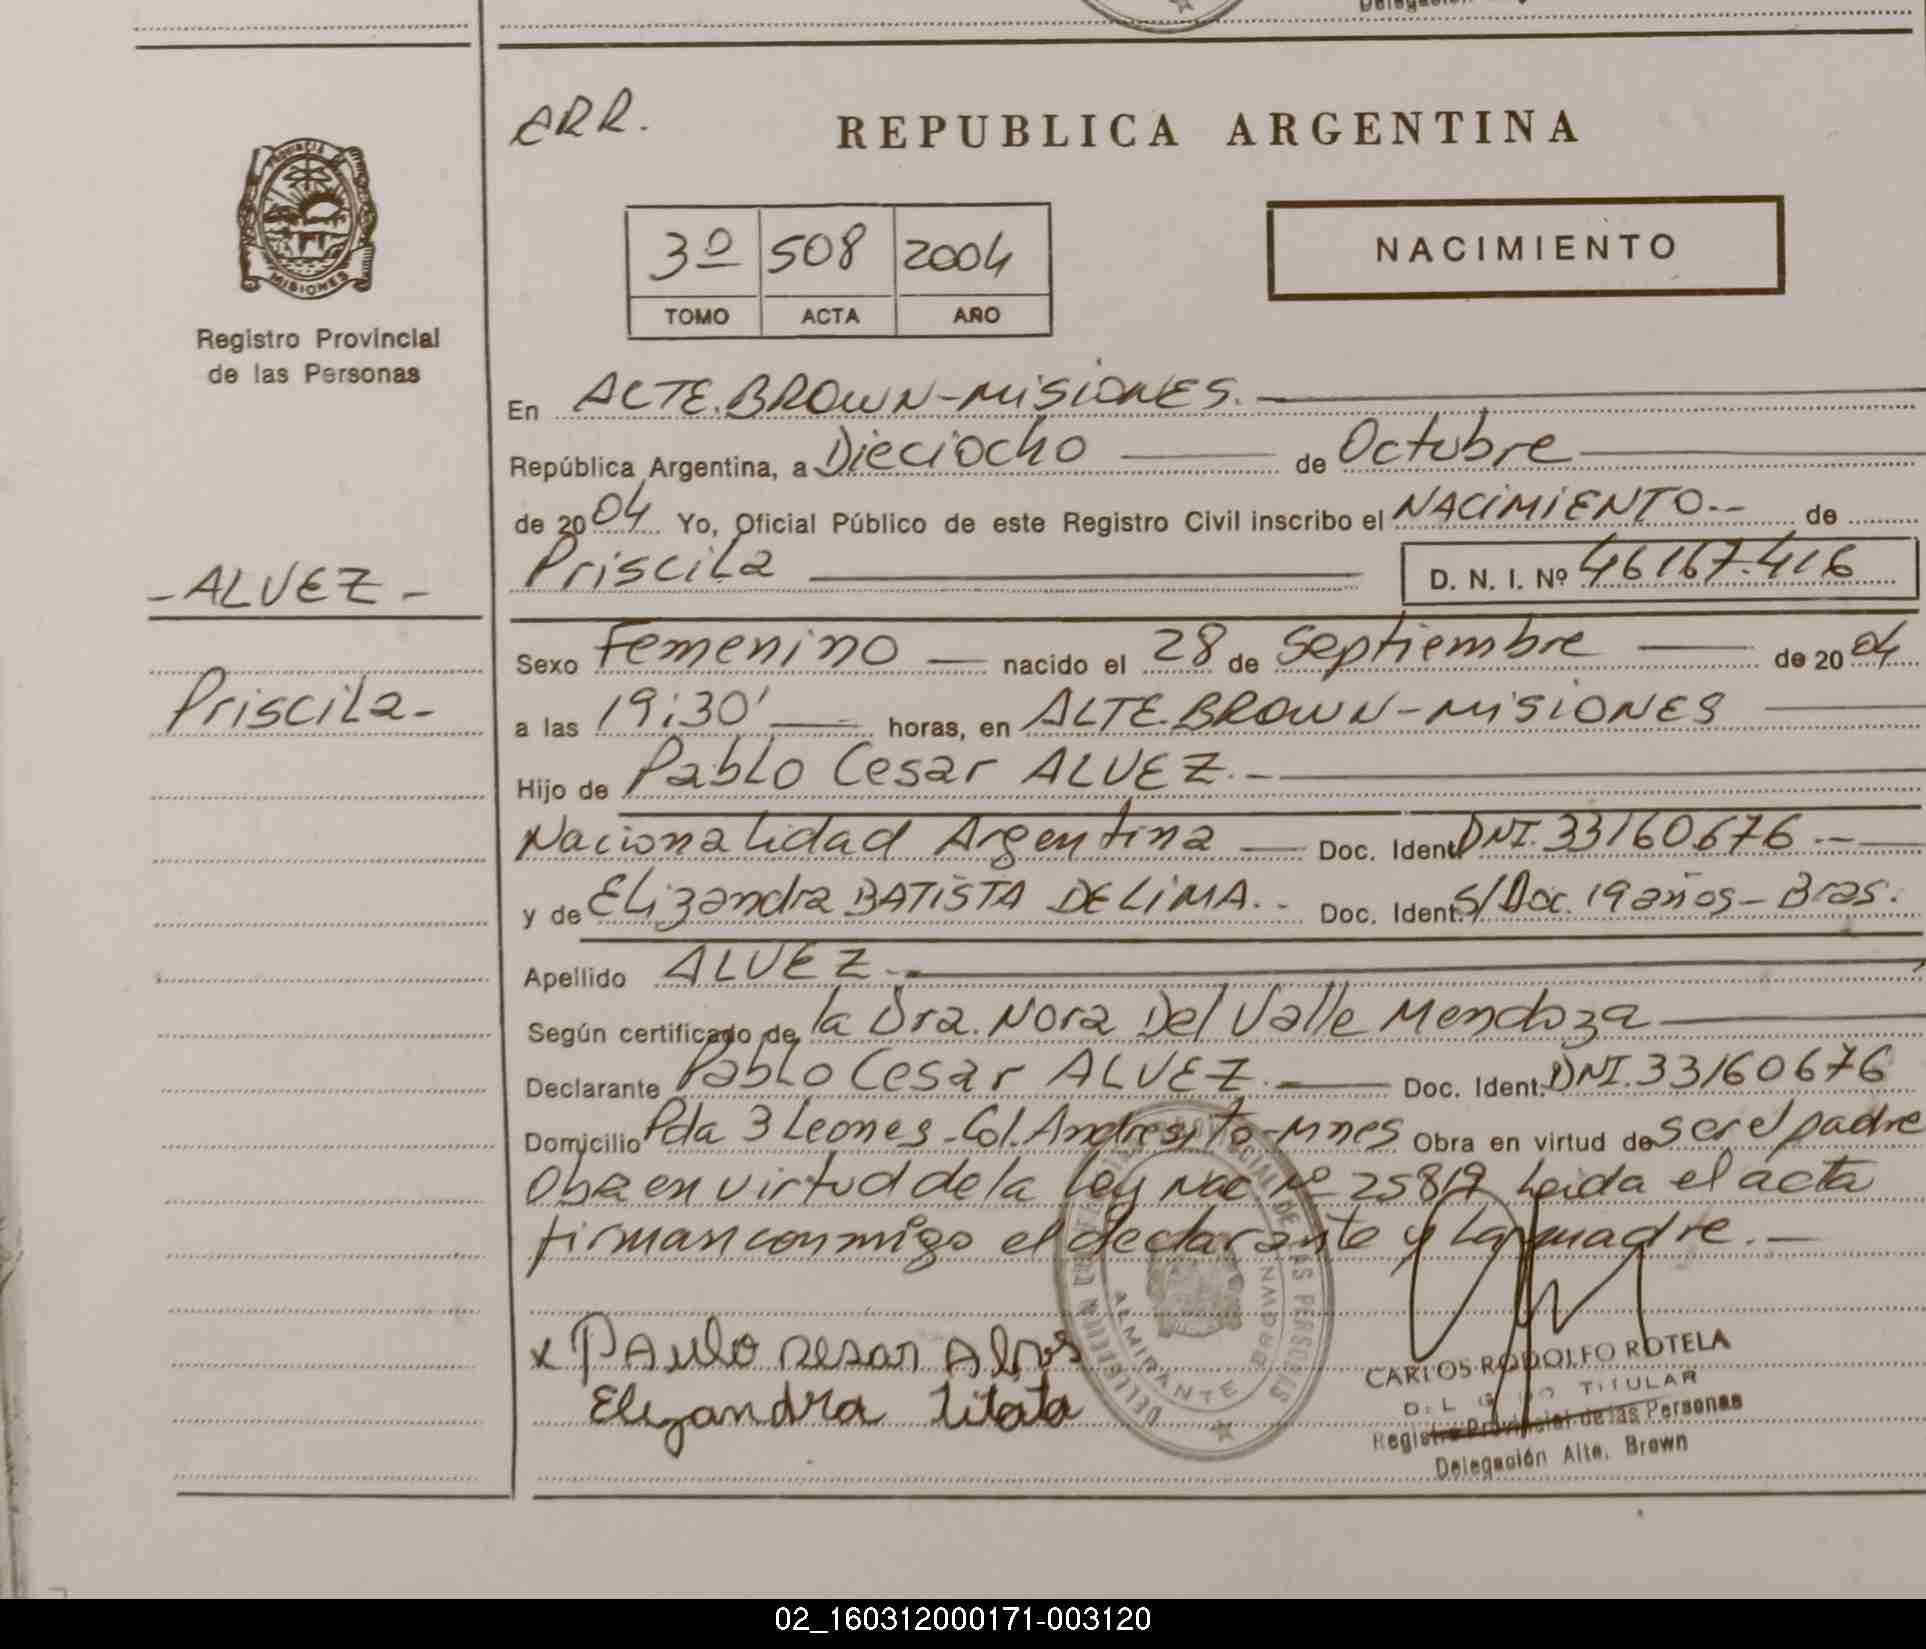 ERR.
REPUBLICA ARGENTINA
PROVINCIA DE
MISIONES
Registro Provincial
de las Personas
3º 508 2004
TOMO ACTA AÑO
NACIMIENTO
En ALTE. BROWN-MISIONES.
República Argentina, a Dieciocho de Octubre
de 2004 Yo, Oficial Público de este Registro Civil inscribo el NACIMIENTO de
Priscila D. N. I. Nº 46167.416
-ALVEZ-
Priscila-
Sexo Femenino nacido el 28 de Septiembre de 2004
a las 19:30' horas, en ALTE. BROWN-MISIONES
Hijo de Pablo Cesar ALVEZ.-
Nacionalidad Argentina Doc. Ident. DNI. 33160676.-
y de Elizandra BATISTA DE LIMA.- Doc. Ident. S/Doc. 19 años-Bras.
Apellido ALVEZ.-
Según certificado de la Dra. Nora Del Valle Mendoza
Declarante Pablo Cesar ALVEZ. Doc. Ident. DNI. 33160676
Domicilio Pda 3 Leones-Col. Andresito-Mnes Obra en virtud de ser el padre
Obra en virtud de la Ley Nac Nº 25819 Leida el acta
firman conmigo el declarante y la madre.-
x PAulo
Elizandra
ALMIRANTE BROWN
CARLOS RODOLFO ROTELA
TITULAR
Registro Provincial de las Personas
Delegación Alte. Brown
02_160312000171-003120